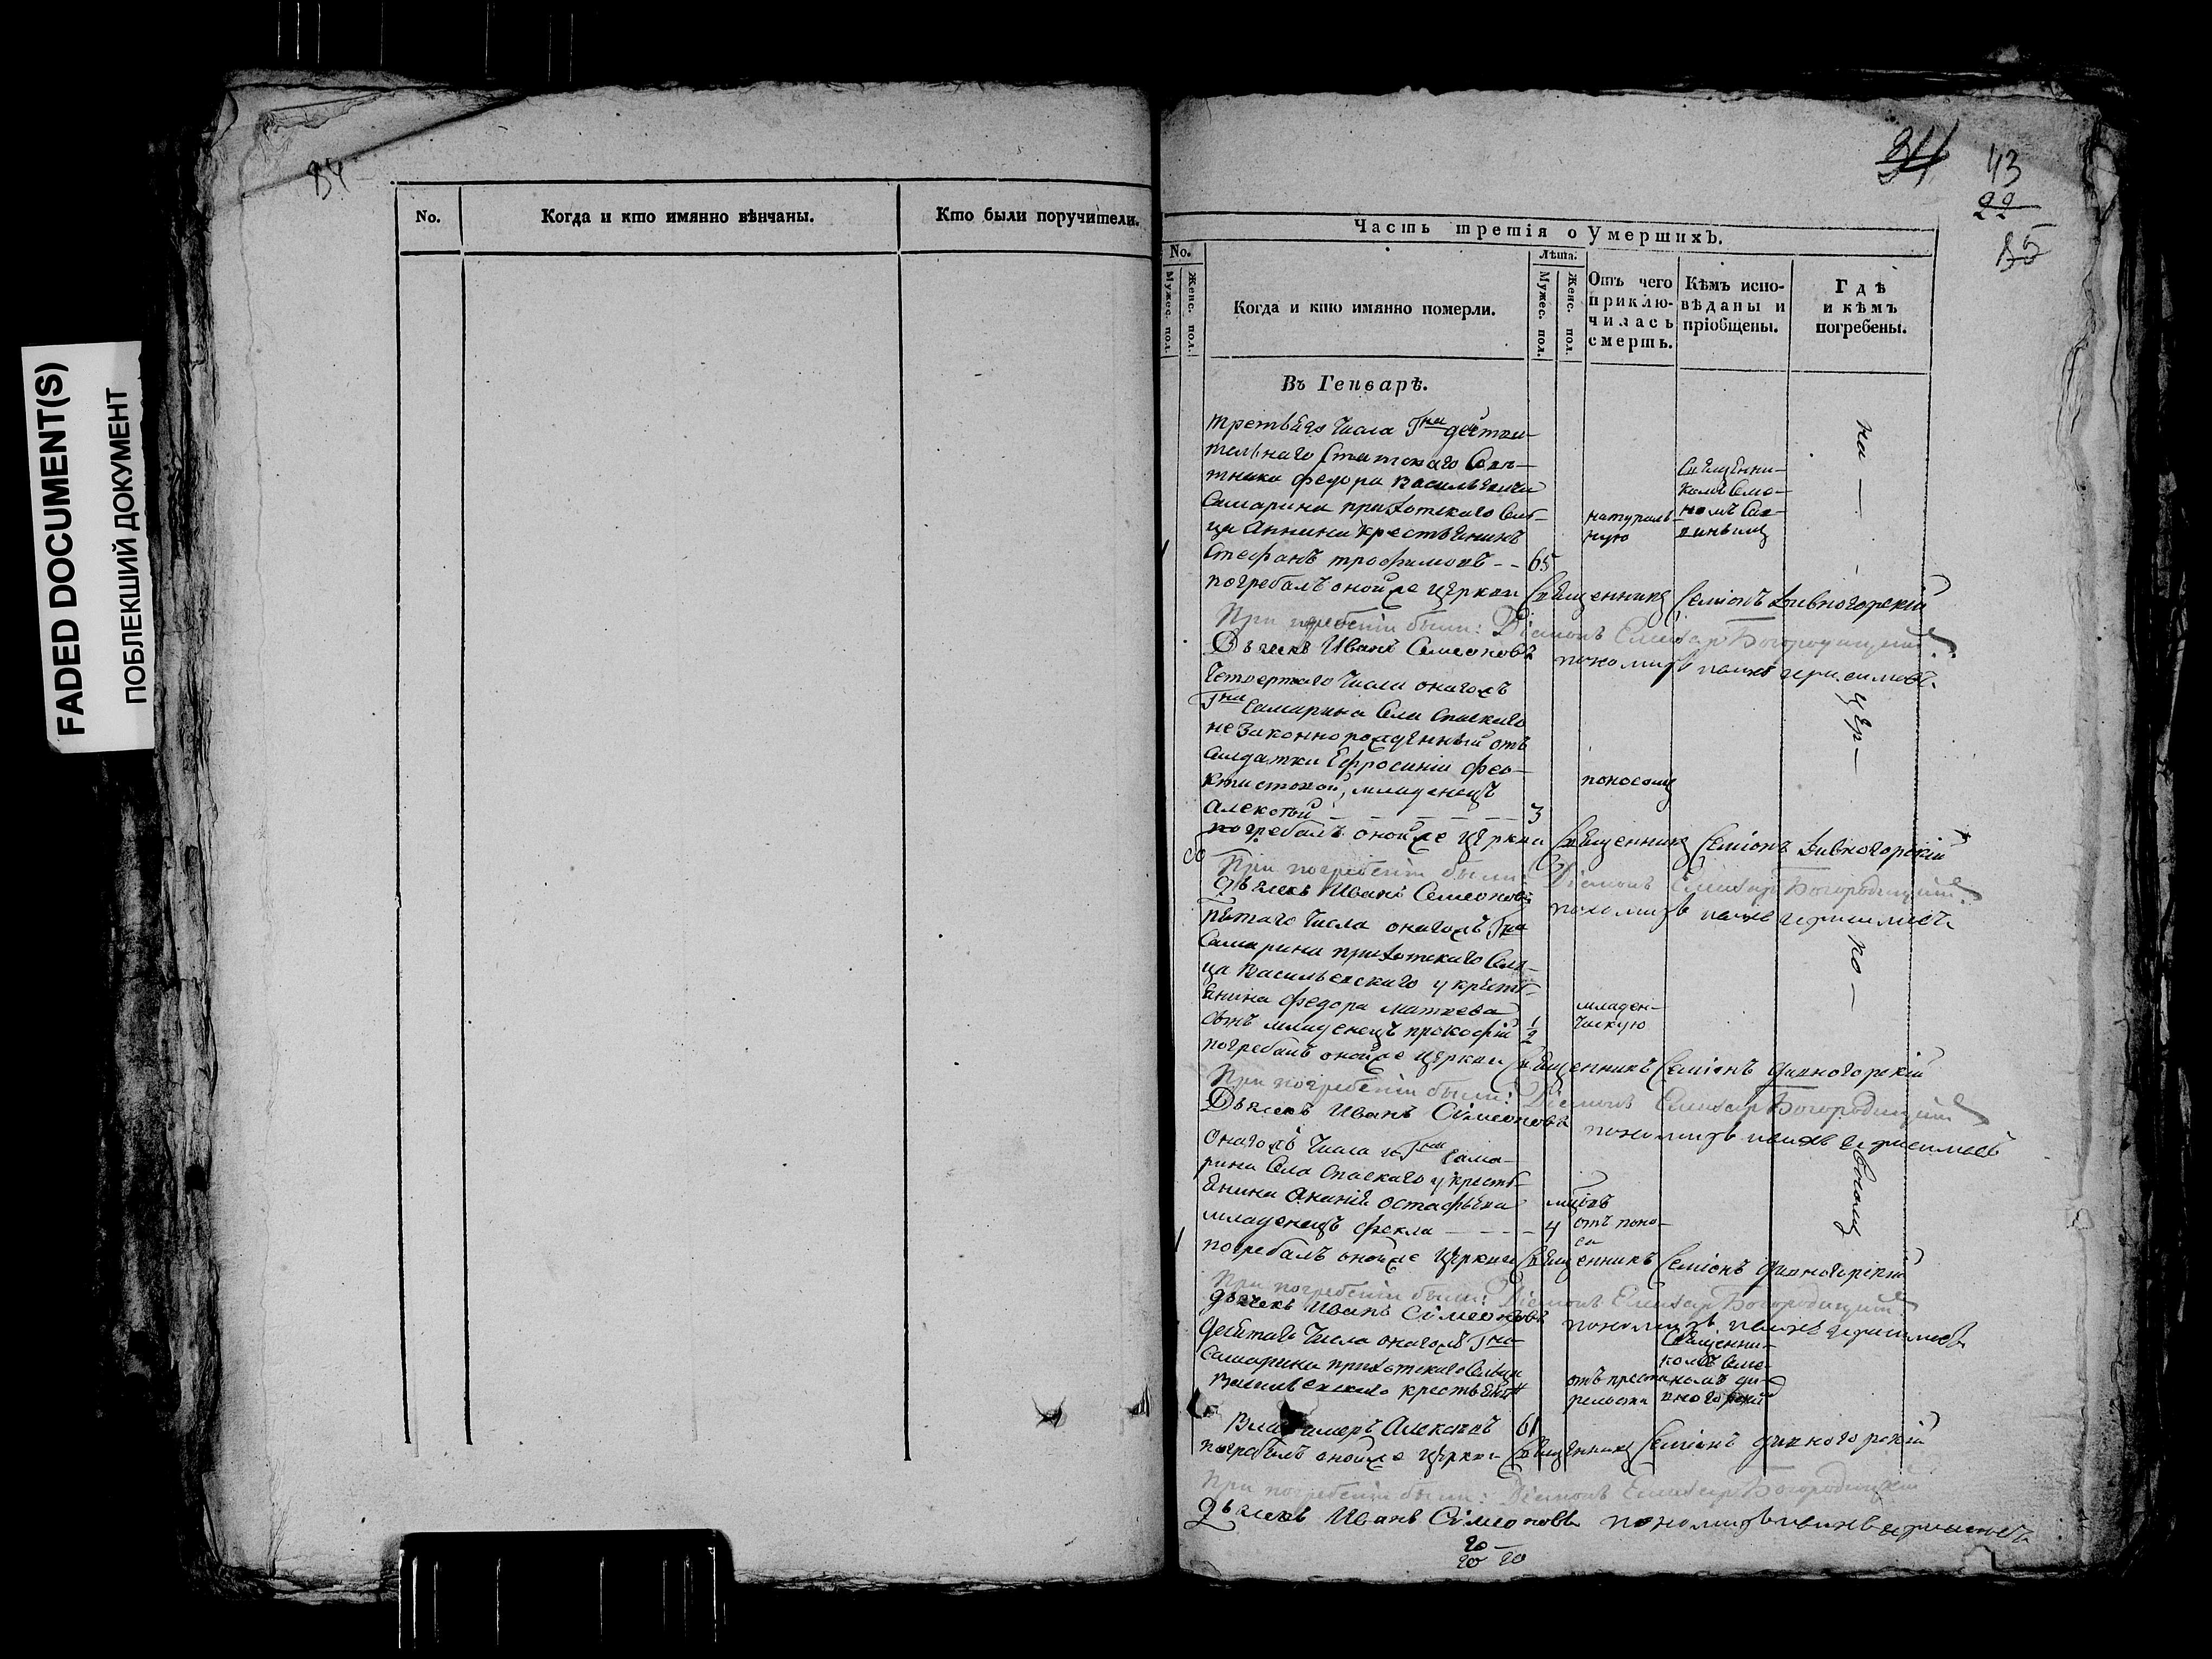 FADED DOCUMENT(S)
ПОБЛЕКШИЙ ДОКУМЕНТ
84
No.
Когда и кто имянно вѣнчаны.
Кто были поручители.
34
43
22
85
Часть третія о умершихъ.
No.
Мужес. пол.
Женс. пол.
Когда и кто имянно померли.
Лѣта.
Мужес. пол.
Женс. пол.
Отъ чего приключилась смерть.
Кѣмъ исповѣданы и пріобщены.
Гдѣ и кѣмъ погребены.
Въ Генварѣ.
третьяго числа Гна действи-
тельнаго Статскаго Сове-
тника федора васильевича
Самарина приходскаго сель-
ца Аннина крестьянинъ
стефанъ трофимовъ - - 65
натураль-
ную
Священни-
комъ Семо-
номъ
на —
погребалъ оной же церкви Священникъ Семіонъ дивногорскій
При погребеніи были: Діаконъ Елиазар Богородицкій
Дьячекъ Иванъ Семеоновъ пономарь
четвертаго числа оногожъ
Гна Самарина села спаскаго
незаконнорожденный отъ
салдатки Ефросиніи фео-
ктистовой, младенецъ
алексей — — — 3
поносомъ
цер —
погребалъ оной же церкви Священникъ Семіонъ дивногорскій
При погребеніи были: Діаконъ Елиазар Богородицкій
дьячекъ Иванъ Семеоновъ пономарь
пятаго числа оногожъ Гна
Самарина приходскаго сель-
ца васильевскаго у кресть-
янина федора матвева
сынъ младенецъ прокофій 1/2
младен-
ческую
по —
погребалъ оной же церкви Священникъ Семіонъ дивногорскій
При погребеніи были: Діаконъ Елиазар Богородицкій
Дьячекъ Иванъ Симеоновъ пономарь
оногожъ числа Гна Сама-
рина села спаскаго у кресть-
янина Ананія остафьева
младенецъ фекла — — — 4
отъ поно-
са
погребалъ оной же церкви Священникъ Семіонъ дивногорскій
При погребеніи были: Діаконъ Елиазар Богородицкій
дьячекъ Иванъ Симеоновъ пономарь
десятаго числа оногожъ Гна
Самарина приходскаго сельца
васильевскаго крестьянинъ
Владимеръ Алексеевъ 61
отъ преста-
релости
Священни-
комъ Семо-
номъ ди-
вногорскій
погребалъ оной же церкви Священникъ Семіонъ дивногорскій
При погребеніи были: Діаконъ Елиазар Богородицкій
Дьячекъ Иванъ Симеоновъ пономарь
20
20 20